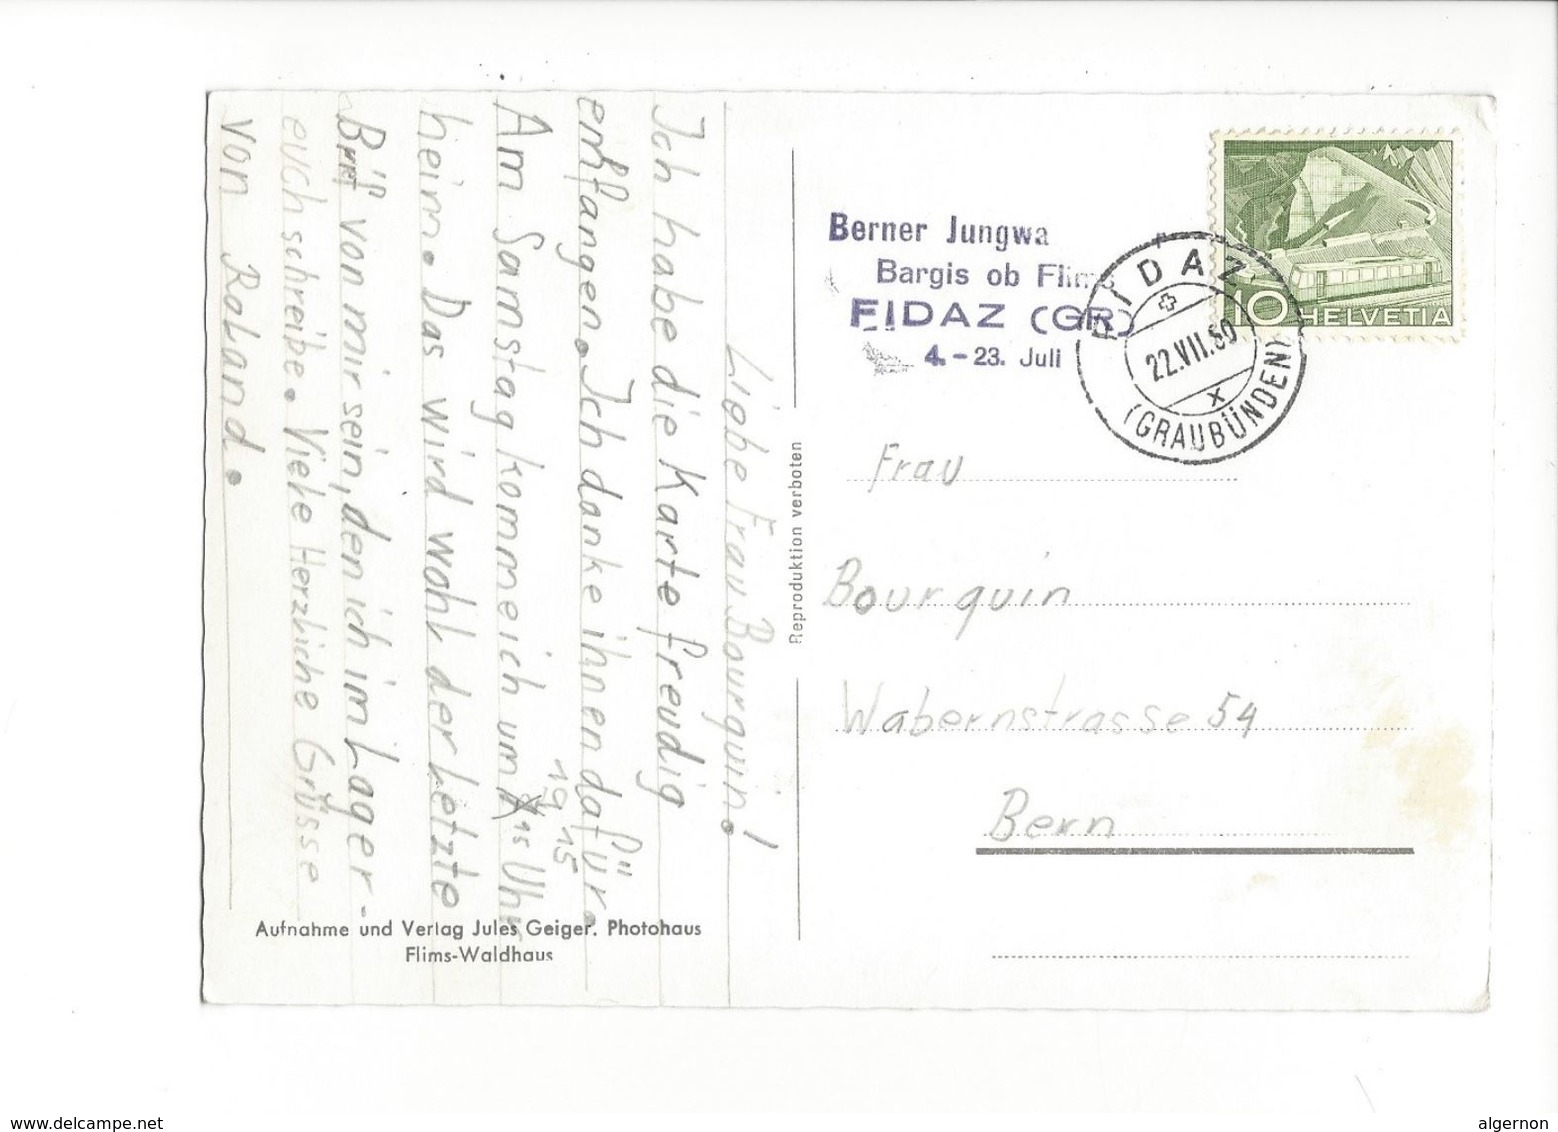 Liebe Frau Bourquin!
Ich habe die Karte freudig
enpfangen. Ich danke ihnen dafür.
Am Samstag komme ich um 19 15 Uhr
heim. Das wird wohl der letzte
Brif von mir sein, den ich im Lager
euch schreibe. Viele Herzliche Grüsse
von Roland.
Aufnahme und Verlag Jules Geiger, Photohaus
Flims-Waldhaus
Reproduktion verboten
Berner Jungwa
Bargis ob Flims
FIDAZ (GR)
4. - 23. Juli
FIDAZ
22.VII.50
X
(GRAUBÜNDEN)
10 HELVETIA
Frau
Bourquin
Wabernstrasse 54
Bern
www.delcampe.net
algernon